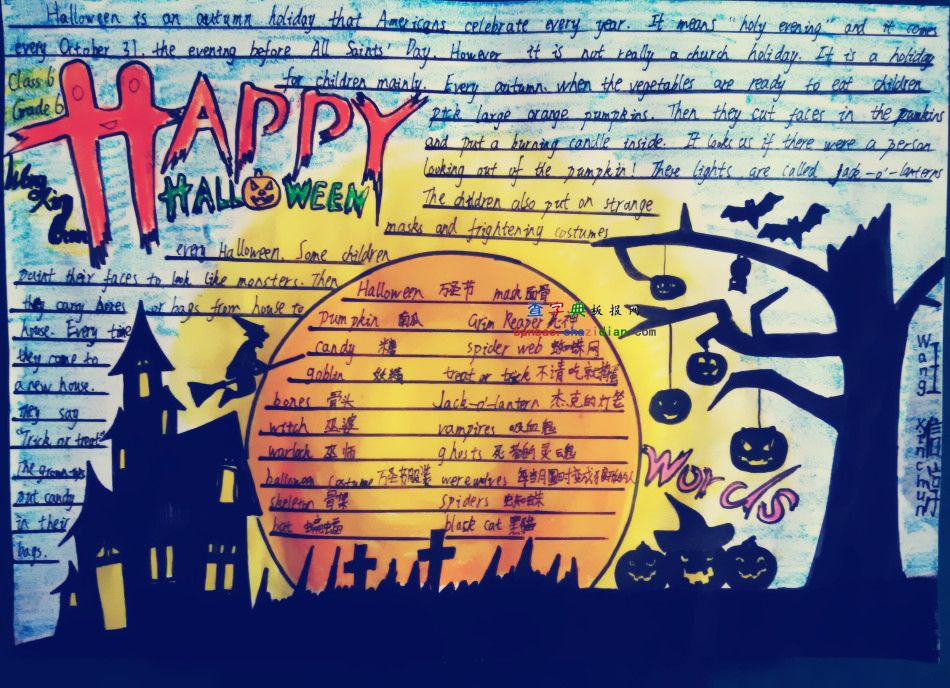 Halloween is an autumn holiday that Americans celebrate every year. It means "holy evening" and it comes
every October 31, the evening before All Saints' Day. However it is not really a church holiday. It is a holiday
for children mainly. Every autumn, when the vegetables are ready to eat children
pick large orange pumpkins. Then they cut faces in the pumkins
and put a burning candle inside. It looks as if there were a person
looking out of the pumpkin! These lights are called jack-o'-lanterns
The children also put on strange
masks and frightening costumes
every Halloween. Some children
paint their faces to look like monsters. Then
they carry boxes or bags from house to
house. Every time
they come to
a new house.
they say
"Trick or treat"
The grown-ups
put candy
in their
bags.
Class 6
Grade 6
HAPPY
HALLOWEEN
Halloween 万圣节 mask 面骨
Pumpkin 南瓜 Grim Reaper 死神
candy 糖 spider web 蜘蛛网
goblin 妖精 treat or trick 不请吃就捣蛋
bones 骨头 Jack-o'-lantern 杰克的灯笼
witch 巫婆 vampires 吸血鬼
warlock 巫师 ghosts 死者的灵魂
halloween costume 万圣节服装 werewolves
skeleton 骨架 spiders 蜘蛛
bat 蝙蝠 black cat 黑猫
查字典板报网
banbao.chazidian.com
Words
Wang